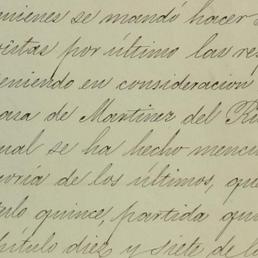 nienes se mandó hacer
istas por último las res
eniendo en consideracion
asa de Martinez del Ri
ual se ha hecho menci
oría de los últimos, que
ulo quince, partida qui
pítulo diez y siete de lo